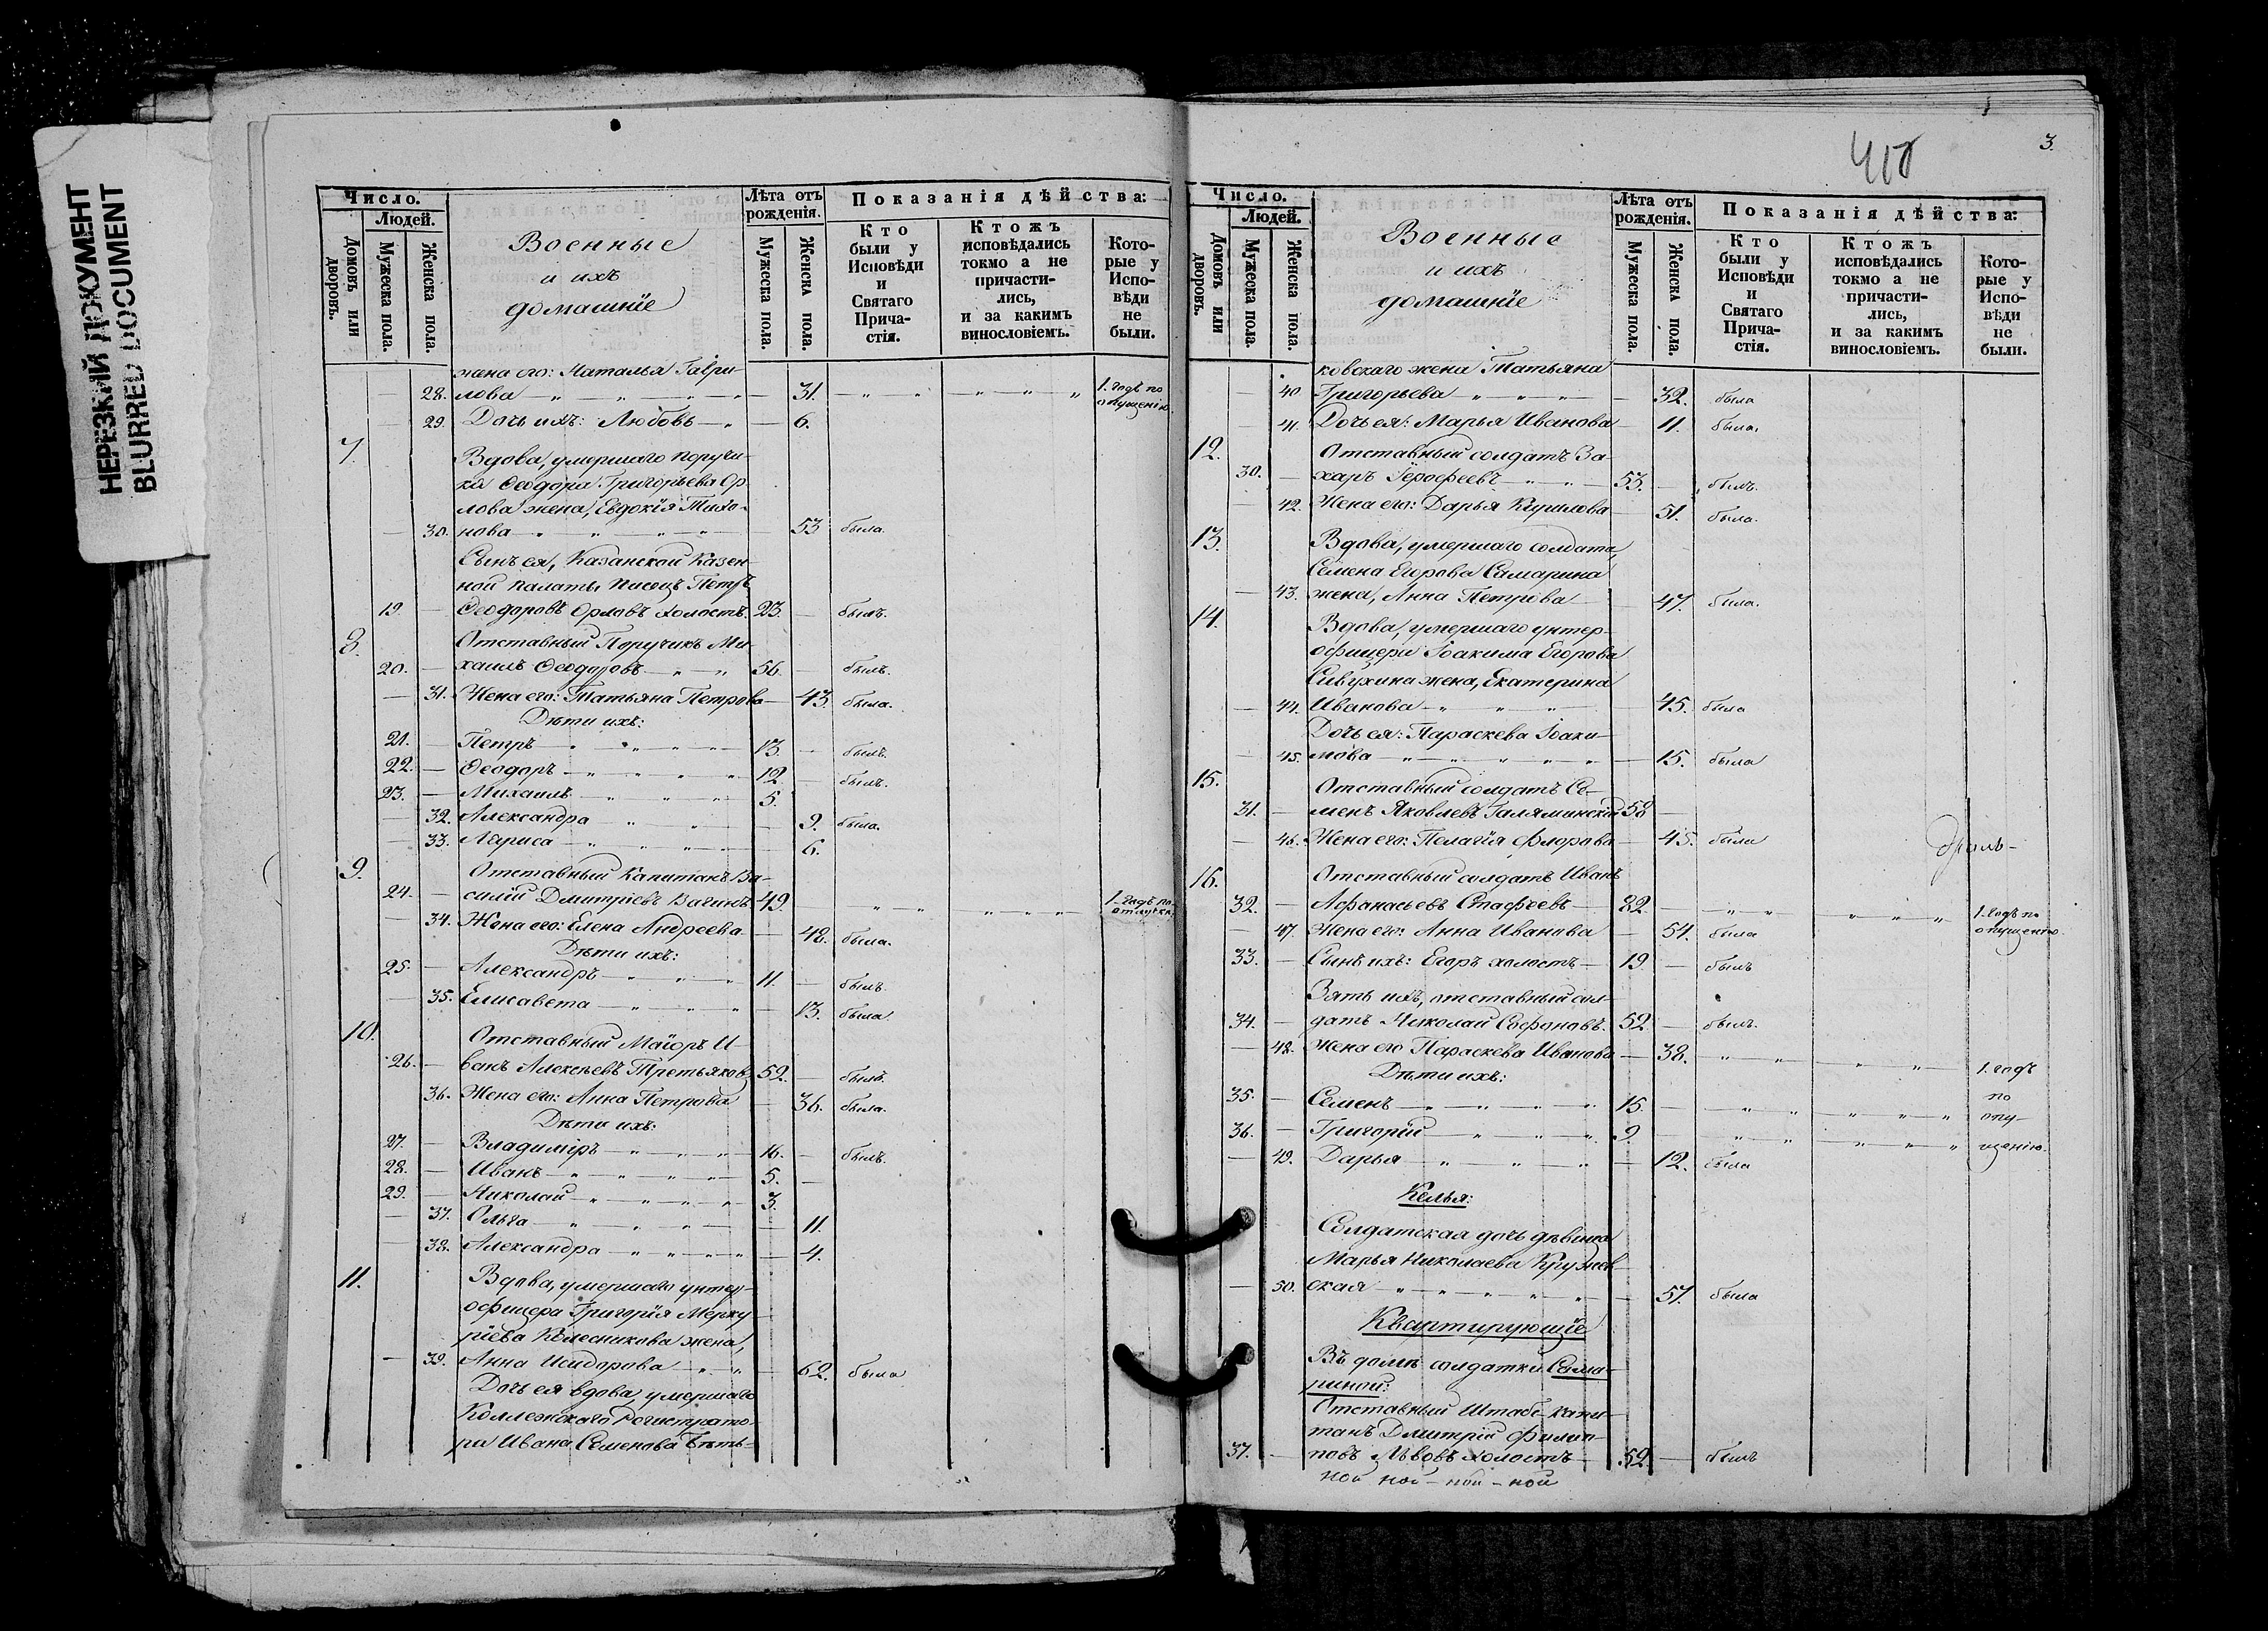 НЕРЕЗКИЙ ДОКУМЕНТ
BLURRED DOCUMENT
Число.
Людей.
Домовъ или дворовъ.
Мужеска пола.
Женска пола.
Военные
и ихъ
домашніе
Лѣта отъ рожденія.
Мужеска пола.
Женска пола.
Показанія дѣйства:
Кто были у Исповѣди и Святаго Прича-стія.
Ктожъ исповѣдались токмо а не причасти-лись, и за какимъ винословіемъ.
Кото-рые у Испо-вѣди не были.
жена его: Наталья Гаври-
28. лова 31. 1. годъ по
опущенію.
29. Дочь ихъ: Любовь 6.
7. Вдова, умершаго поручи-
ка Ѳеодора Григорьева Ор-
лова жена, Евдокія Тихо-
30. нова 53 была.
Сынъ ея, Казанской Казен-
ной палаты писецъ Петръ
19. Ѳеодоровъ Орловъ холостъ. 23. былъ.
8. Отставный Поручикъ Ми-
20. хаилъ Ѳеодоровъ 56. былъ.
31. Жена его: Татьяна Петрова 43 была.
Дѣти ихъ:
21. Петръ 13. былъ.
22. Ѳеодоръ 12 былъ.
23. Михаилъ 5.
32. Александра 9. была.
33. Лариса 6.
9. Отставный Капитанъ Ва-
24. силій Дмитріевъ Вагинъ 49. 1. годъ по
отлучкѣ
34. Жена его: Елена Андреева 42. была.
Дѣти ихъ:
25. Александръ 11. былъ
35. Елисавета 13. была
10. Отставный Маіоръ И-
26. ванъ Алексѣевъ Третьяковъ 52. былъ.
36. Жена его: Анна Петрова 36. была.
Дѣти ихъ:
27. Владиміръ 16. былъ.
28. Иванъ 5.
29. Николай 3.
37. Ольга 11.
38. Александра 4.
11. Вдова, умершаго унтер-
офицера Григорія Мерку-
ріева Колесникова жена,
39. Анна Исидорова 62. была
Дочь ея вдова, умершаго
Коллежскаго Регистрато-
ра Ивана Семенова
3.
Число.
Людей.
Домовъ или дворовъ.
Мужеска пола.
Женска пола.
Военные
и ихъ
домашніе
Лѣта отъ рожденія.
Мужеска пола.
Женска пола.
Показанія дѣйства:
Кто были у Исповѣди и Святаго Прича-стія.
Ктожъ исповѣдались токмо а не причасти-лись, и за какимъ винословіемъ.
Кото-рые у Испо-вѣди не были.
ковскаго жена Татьяна
40. Григорьева 32. была
41. Дочь ея: Марья Иванова 11. была.
12. Отставный солдатъ За-
30. харъ Іероѳеевъ 53. былъ.
42. Жена его: Дарья Кирилова 51. была.
13. Вдова, умершаго солдата,
Семена Егорова Самарина
43. жена, Анна Петрова 47. была.
14. Вдова, умершаго унтер-
офицера Іоакима Егорова
Сивухина жена, Екатерина
44. Иванова 45. была
Дочь ея: Параскева Іоаки-
45. мова 15. была
15. Отставный солдатъ Се-
31. менъ Яковлевъ Галяминскій 58
46. Жена его: Пелагія Флорова 45. была
16. Отставный солдатъ Иванъ
32. Афанасьевъ 82 1. годъ по
опущенію.
47. Жена его: Анна Иванова 54. была
33. Сынъ ихъ: Егоръ холостъ 19 былъ
Зять ихъ, отставный сол-
34. датъ Николай Софоновъ. 52 былъ.
48. Жена его Параскева Иванова 38. 1. годъ
Дѣти ихъ:
35. Семенъ 15. по
опу-
36. Григорій 9. щенію.
49. Дарья 12. была
Келья:
Солдатская дочь дѣвица
Марья Николаева Кружев-
50. ская 57. была
Квартирующіе
Въ домѣ солдатки Сама-
риной:
Отставный Штабс-капи-
танъ Дмитрій Филип-
37. повъ Львовъ холостъ 52. былъ
ной ной - ной - ной